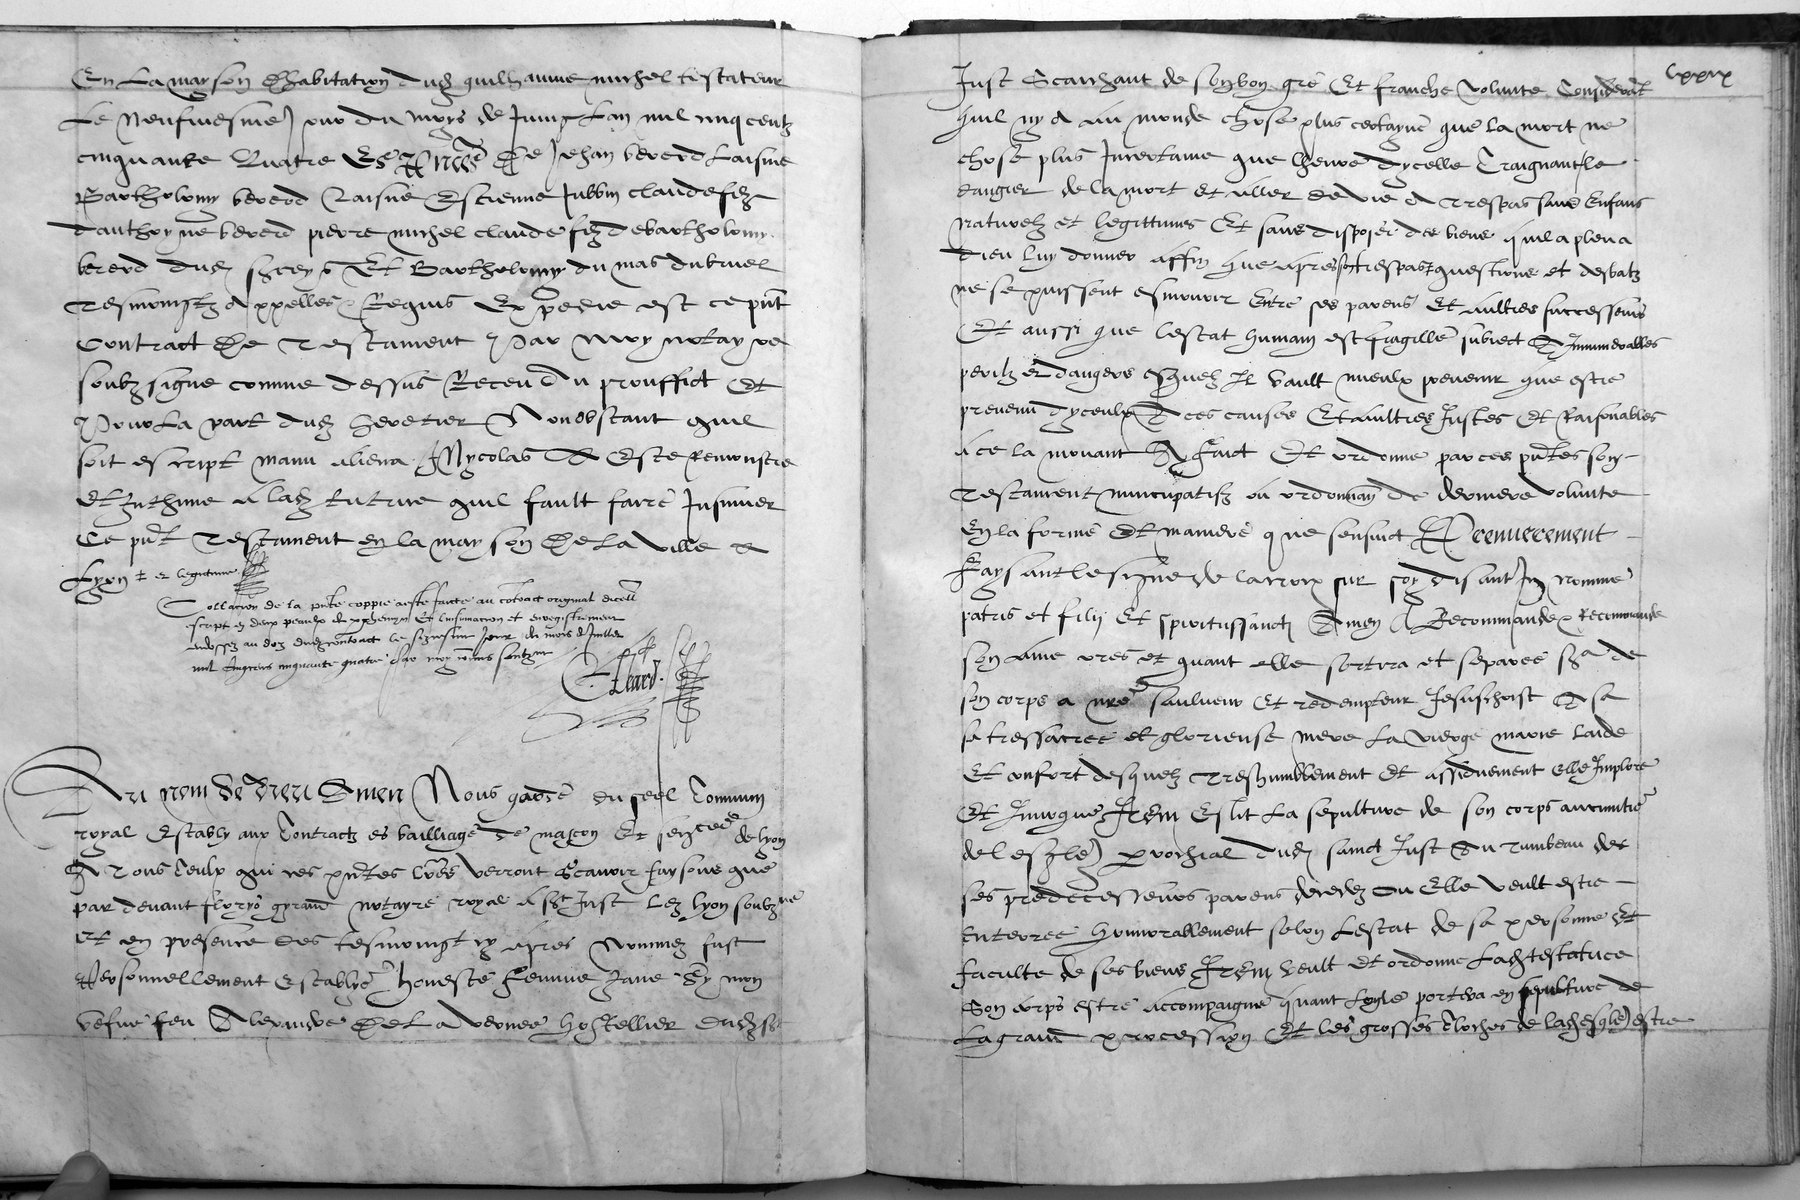 En la mayson d'habitation dud guilhaume michel testateur
Le Neufviesme jour du moys de Juing Lan mil cinq centz
cinquante Quatre Es p̃nces De Jehan bererd Laisne
Bartholomy bererd Laisne Estienne Jubbin claude filz
danthoyne bererd pierre michel claude filz de bartholomy
bererd dud Et Bartholomy du mas du bruel
Tesmoingtz appellez Requis Expedie est ce pñt
Contract De Testament Par Moy notayre
soubzsigne comme dessus Receu du prouffict Et
Pour La part dud heretier Nonobstant quil
soit escript manu aliena Nycolas A Este Remonstre
Et Inthime a lad tutrice quil fault farre Insinuer
Ce pñt Testament en la mayson De La ville de
Lyon et legitime
Collacion de la pñte coppie a este faicte au contract original dicell
escript en deux peaulx de parchemyn Et linsinuacion et enregistrement
endossez au doz dud contract le sixiesme Jour du mois de Juillet
mil cinq cens cinquante quatre Par moy commis soubzsigne
Au nom de dieu Amen Nous garde du seel Commun
royal Estably aux Contractz es bailliage de mascon Et sen̄cee de lyon
A Tous Ceulx qui ces pñtes lr̃es verront Scavoir faysons que
par devant fleurys gyraud notayre royal a sct Just Lez lyon soubzne
et en presence des tesmoingt cy apres Nommez fust
Personnellement establye honeste femme Jane Symon
vefve feu Alexandre De La vernee hostellier dud sct
lxxix
Just Scaichant de son bon gre Et franche volunte Considerat
quil ny a au monde chose plus certayne que la mort ne
chose plus Incertaine que lheure dycelle Craignant le
dangier de la mort et aller de vie a trespas sans Enfans
naturelz et legittimes Et sans disposer des biens quil a pleu a
dieu luy donner affin que apres son trespas questions et debatz
ne se puissent esmouvoir Entre ses parens Et aultres successeurs
Et aussi que lestat humain est fragille subiect A Innumerables
perilz et dangers esquelz Il vault mieulx prevenir que estre
prevenu dyceulx A ces causes Et aultres Justes Et Raisonables
a ce la mouant A Faict Et ordonne par ces pñtes son
Testament nuncupatifz ou ordonnan̄ de derniere volunte
En la forme Et maniere que sensuict Premierement
Faysant le signe de la croix sur soy disant In nomine
patris et filij Et spirictussancti Amen A Recommande Recommande
son ame ores et quant elle sortira et separee sera de
son corps a nr̃e saulveur Et redempteur Jesuschrist A sa
sa tressacree et glorieuse mere La vierge marie laide
Et confort desquelz Treshumblement Et assiduement elle Implore
Et Invoque Item Eslit La sepulture de son corps au cimitie
de lesgle parochial dud sainct Just Au tumbeau des
ses predecesseurs parens decedez ou Elle veult estre
Enterree honnorablement selon Lestat de sa personne Et
faculte de ses biens Item veult Et ordonne Lad testatrice
Son corps estre accompaigne quant Lon le portera en sepulture de
La grand procession Et les grosses Cloches de lad esgle estre